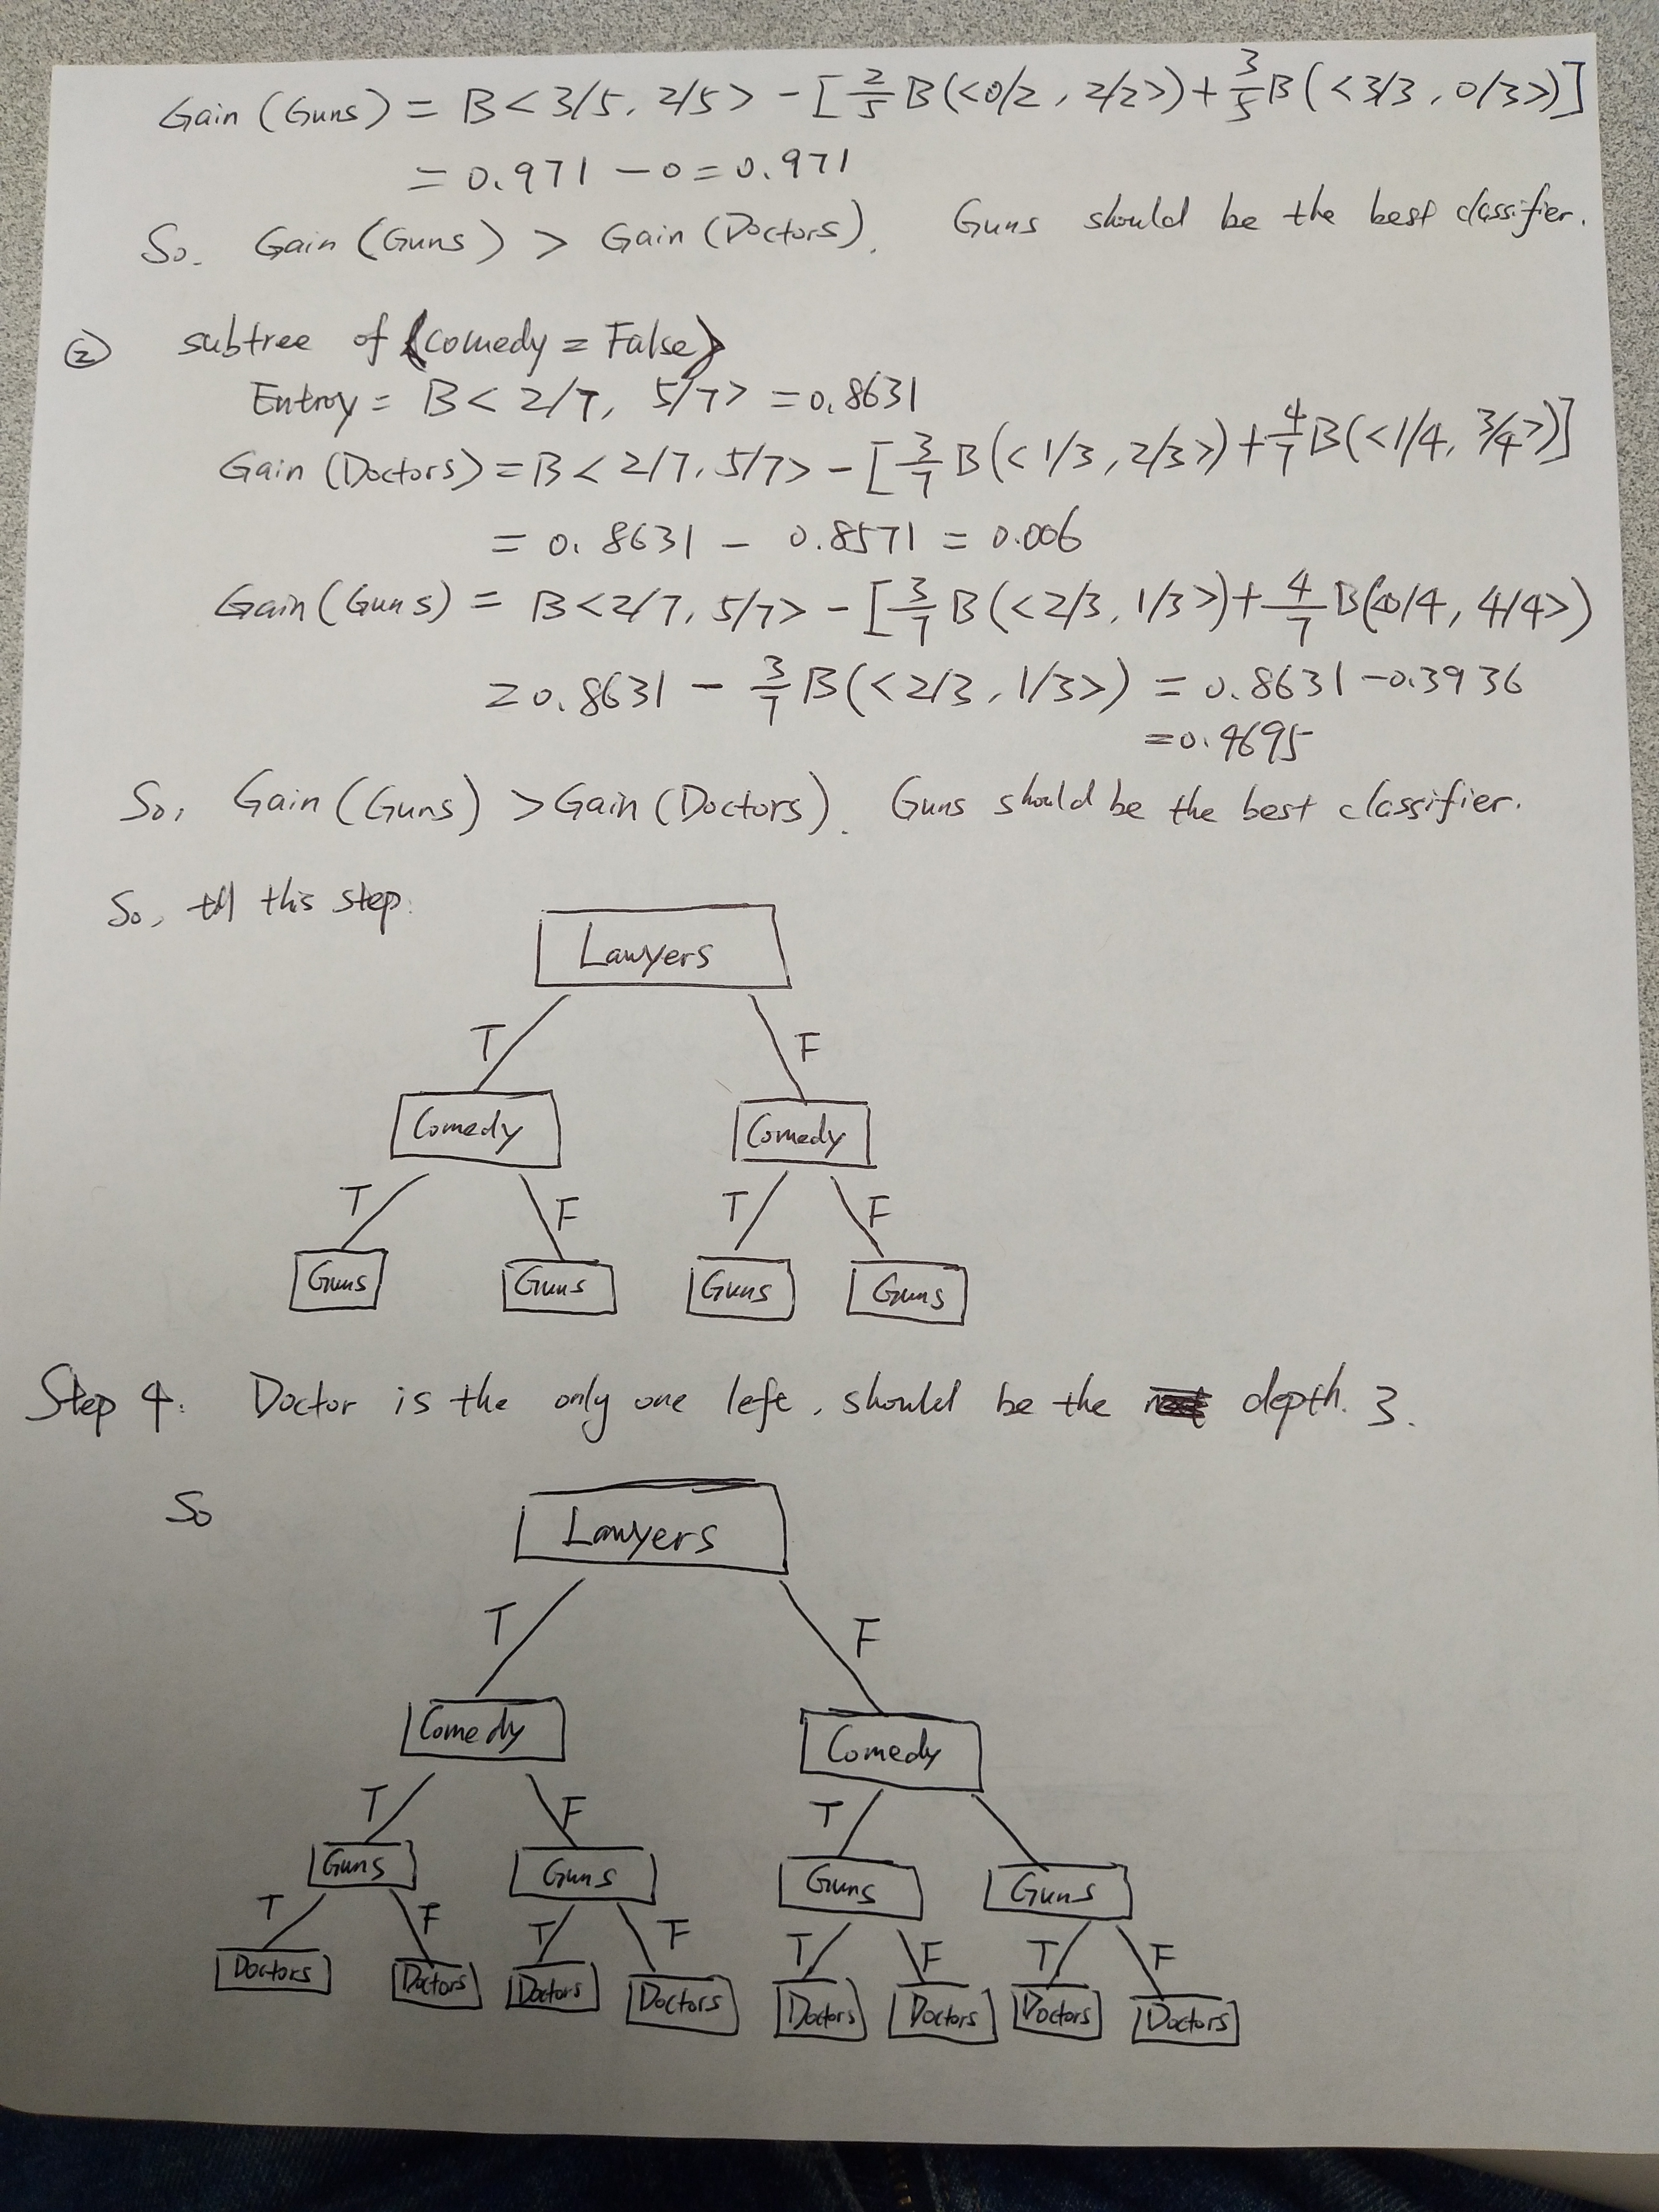 Gain (Guns) = B < 3/5, 2/5 > - [ 2/5 B (<0/2, 2/2>) + 3/5 B (<3/3, 0/3>)]
= 0.971 - 0 = 0.971
So. Gain (Guns) > Gain (Doctors). Guns should be the best classifier.
② subtree of (Comedy = False)
Entroy = B < 2/7, 5/7 > = 0.8631
Gain (Doctors) = B < 2/7, 5/7 > - [ 3/7 B (< 1/3, 2/3 >) + 4/7 B (<1/4, 3/4>)]
= 0.8631 - 0.8571 = 0.006
Gain (Guns) = B < 2/7, 5/7 > - [ 3/7 B (< 2/3, 1/3 >) + 4/7 B (<0/4, 4/4>)
= 0.8631 - 3/7 B (< 2/3, 1/3 >) = 0.8631 - 0.3936
= 0.4695
So, Gain (Guns) > Gain (Doctors). Guns should be the best classifier.
So, till this step.
Lawyers
T F
Comedy Comedy
T F T F
Guns Guns Guns Guns
Step 4. Doctor is the only one left, should be the depth. 3.
So
Lawyers
T F
Comedy Comedy
T F T
Guns Guns Guns Guns
T F T F T F T F
Doctors Doctors Doctors Doctors Doctors Doctors Doctors Doctors